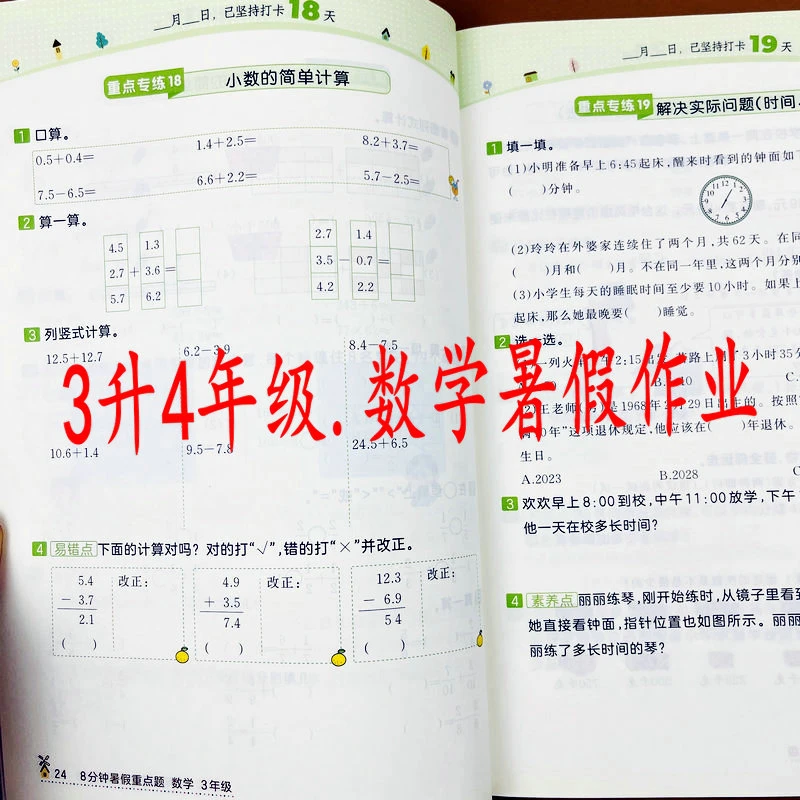 __月__日，已坚持打卡18天
重点专练18 小数的简单计算
1 口算。
0.5+0.4= 1.4+2.5= 8.2+3.7=
7.5-6.5= 6.6+2.2= 5.7-2.5=
2 算一算。
4.5 1.3 2.7 1.4
2.7 + 3.6 = 3.5 - 0.7 =
5.7 6.2 4.2 2.2
3 列竖式计算。
12.5+12.7 6.2-3.9 8.4-7.5
10.6+1.4 9.5-7.8 24.5+6.5
4 易错点 下面的计算对吗？对的打“√”，错的打“×”并改正。
5.4 改正： 4.9 改正： 12.3 改正：
- 3.7 + 3.5 - 6.9
2.1 7.4 5 4
( ) ( ) ( )
24 8分钟暑假重点题 数学 3年级
__月__日，已坚持打卡19天
重点专练19 解决实际问题(时间、
1 填一填。
(1)小明准备早上6:45起床，醒来时看到的钟面如
( )分钟。
(2)玲玲在外婆家连续住了两个月，共62天。在同
( )月和( )月。不在同一年里，这两个月分别
(3)小学生每天的睡眠时间至少要10小时。如果上
起床，那么她最晚要( )睡觉。
2 选一选。
一列火 午2:15出 路上 了3小时35分
B. 10 C.
(2)王老师(男)是1968年2月29日出生的。按照
0年”这项退休规定，他应该在( )年退休。
生日。
A.2023 B.2028 C
3 欢欢早上8:00到校，中午11:00放学，下午
他一天在校多长时间？
4 素养点 丽丽练琴，刚开始练时，从镜子里看到
她直接看钟面，指针位置也如图所示。丽丽
丽练了多长时间的琴？
3升4年级.数学暑假作业